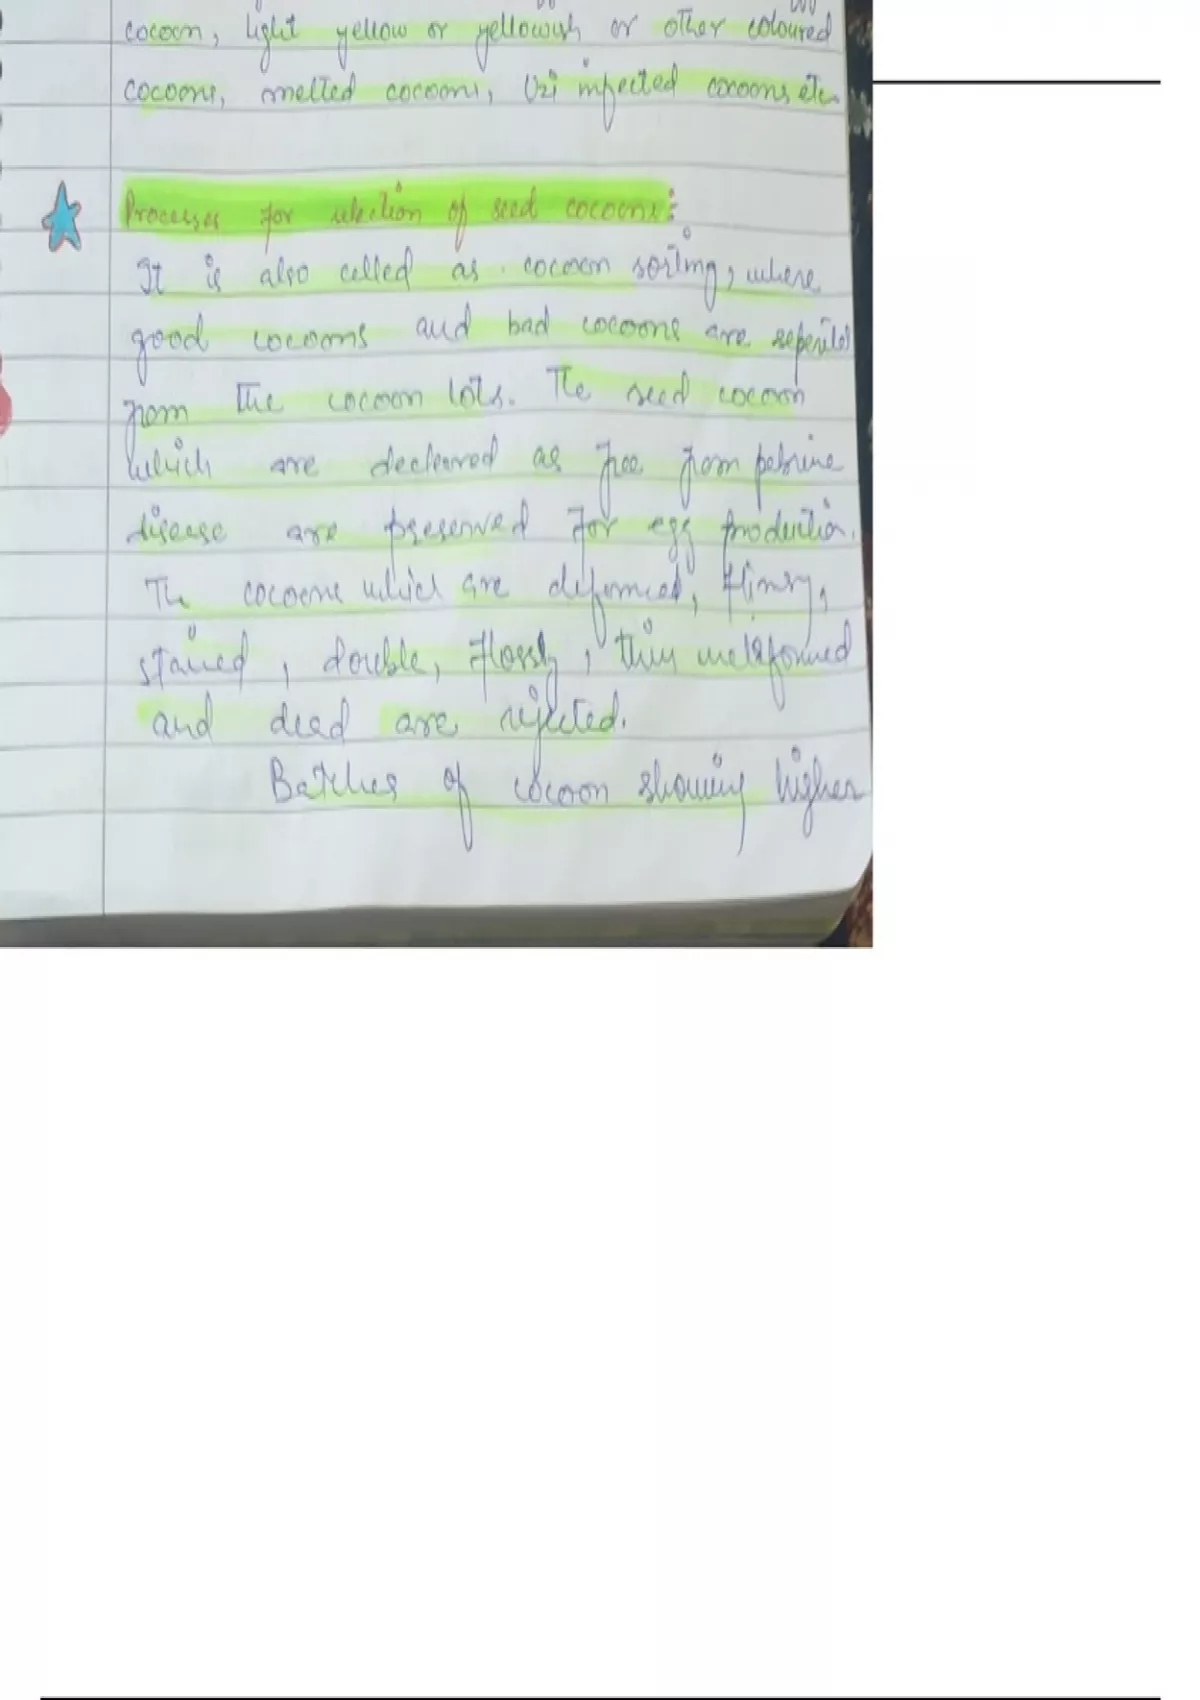 cocoon, light yellow or yellowish or other coloured
cocoons, melted cocoons, Uzi infected cocoons etc
Processes for selection of seed cocoons:
It is also called as cocoon sorting, where
good cocoons and bad cocoons are seperated
from the cocoon lots. The seed cocoon
which are decleared as free from pebrine
disease are preserved for egg production.
The cocoons which are deformed, flimsy,
stained, double, flossy, thin malformed
and dead are rejected.
Batches of cocoon showing higher